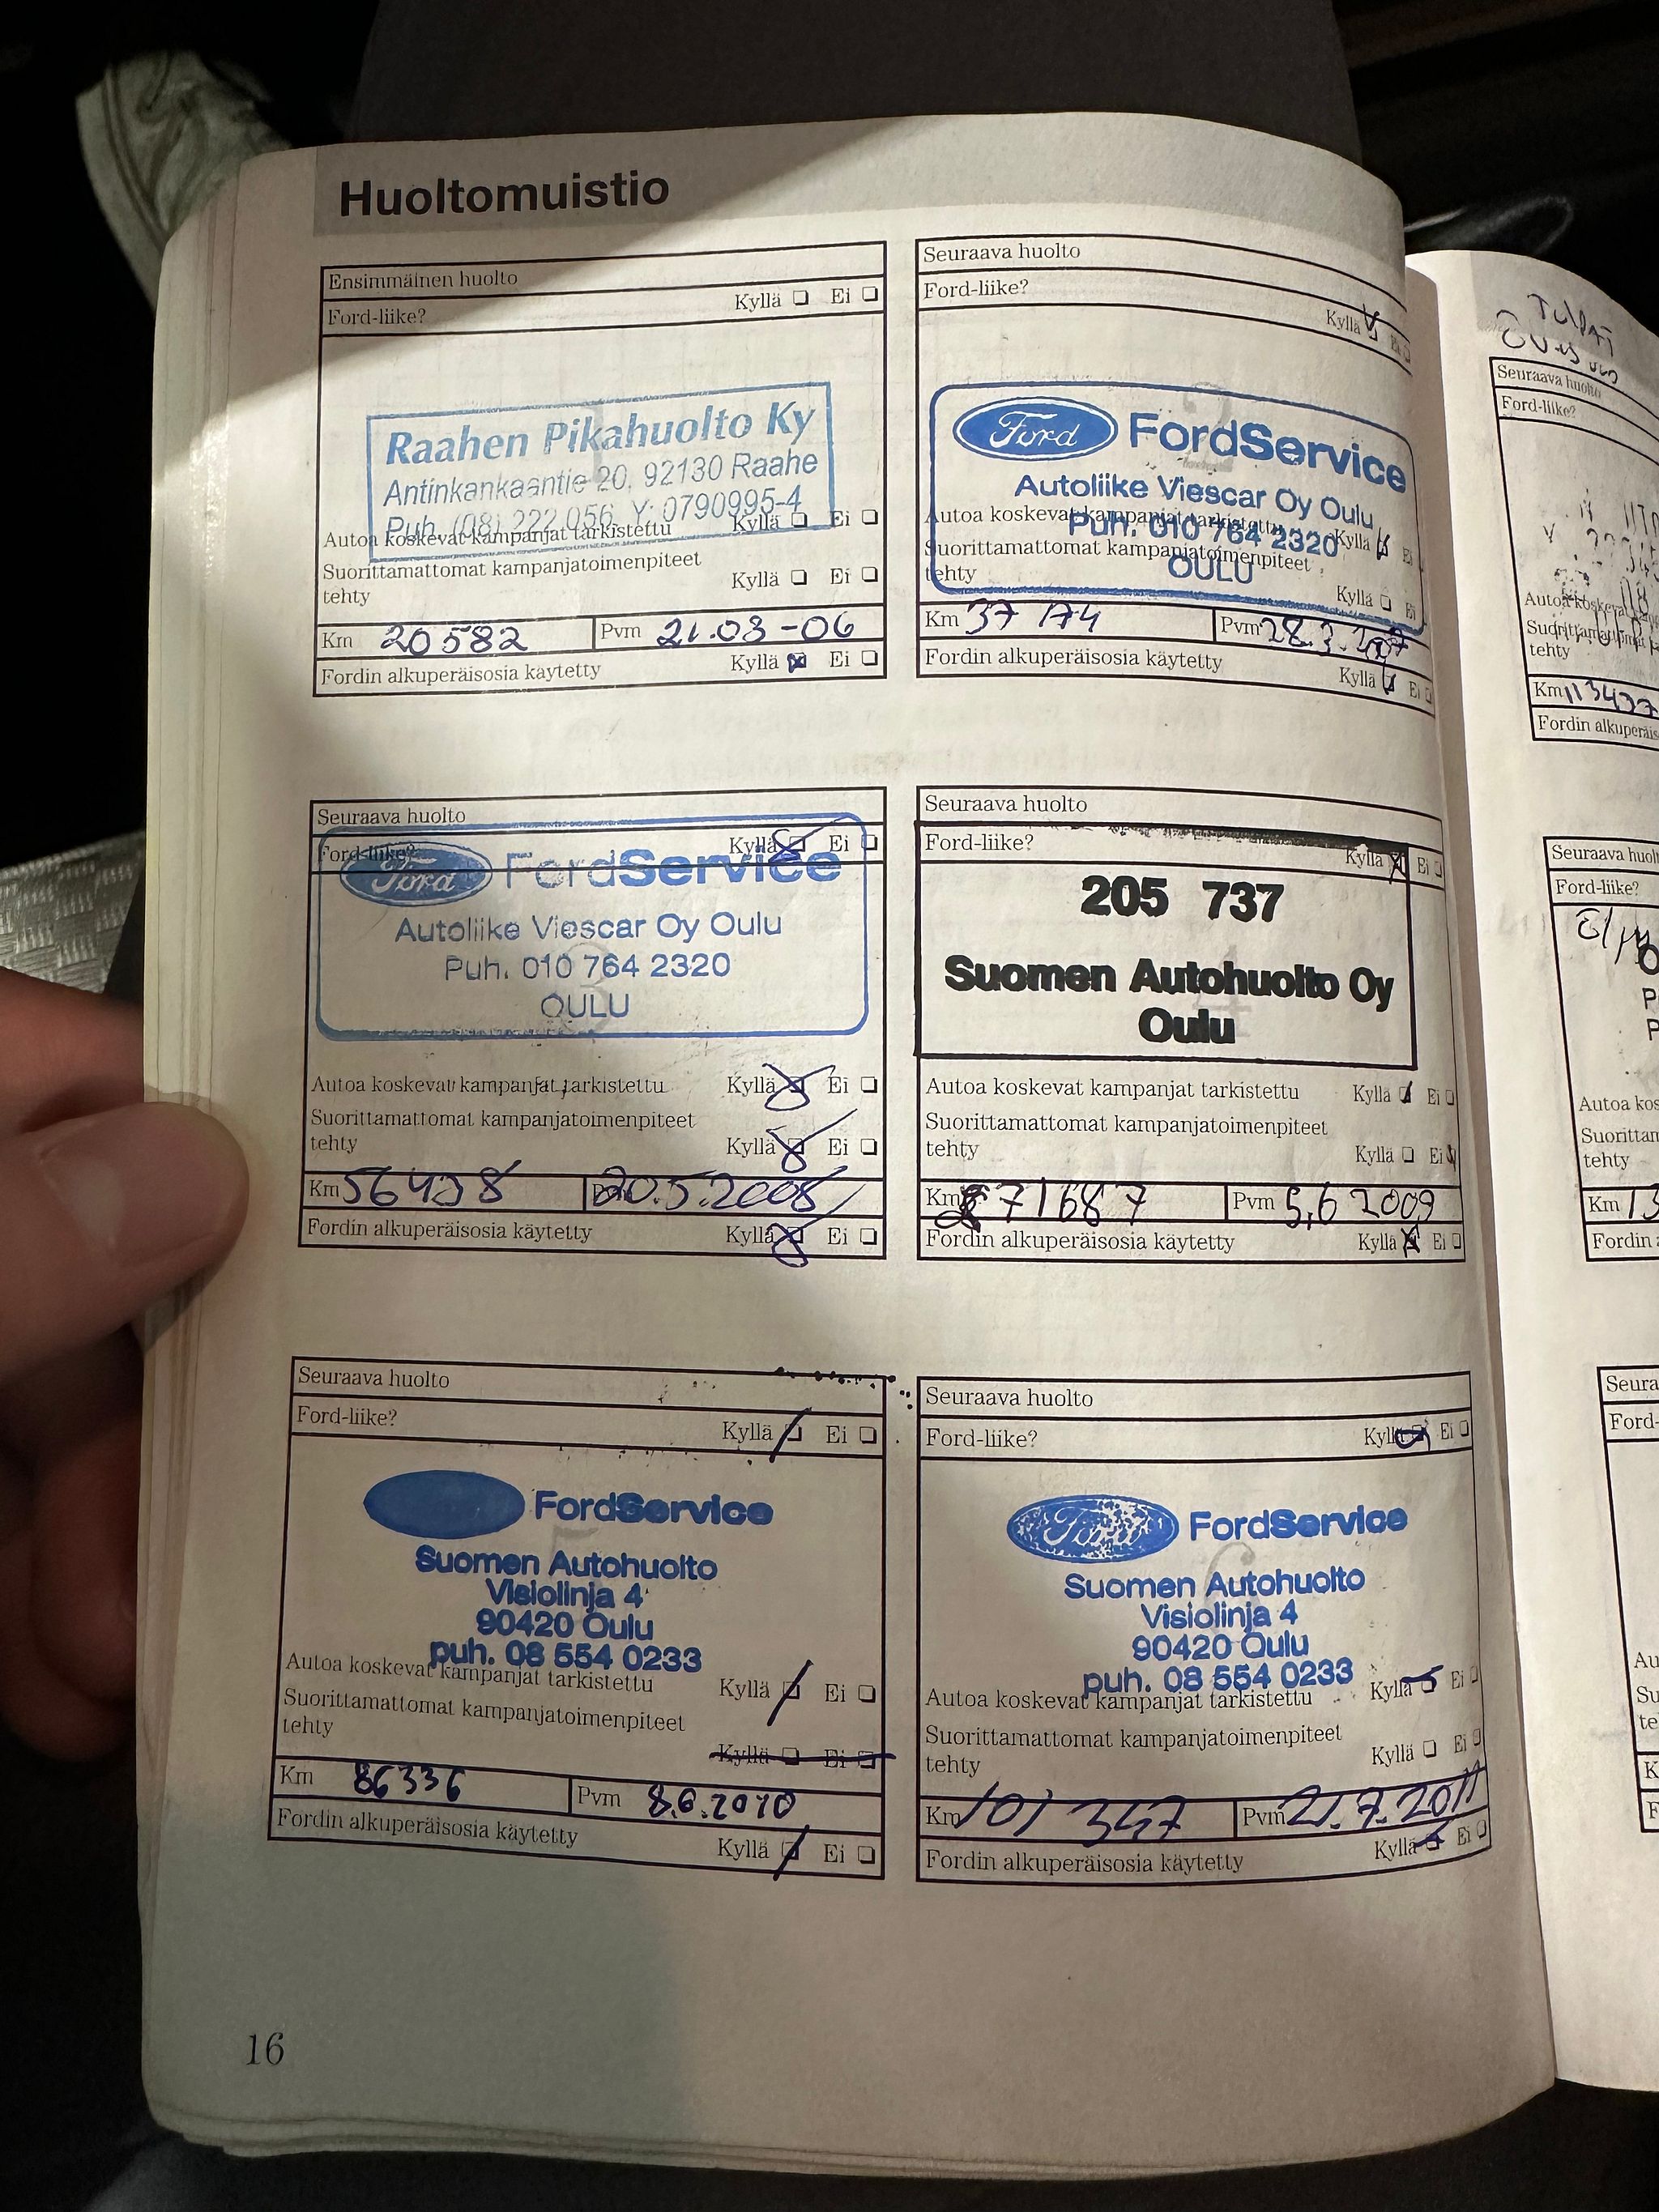 Huoltomuistio
Ensimmäinen huolto
Ford-liike?
Kyllä Ei
Raahen Pikahuolto Ky
Antinkankaantie 20, 92130 Raahe
Puh. (08) 222 056 Y: 0790995-4
Autoa koskevat kampanjat tarkistettu
Kyllä Ei
Suorittamattomat kampanjatoimenpiteet
tehty
Kyllä Ei
Km 20582 Pvm 21.03-06
Fordin alkuperäisosia käytetty
Kyllä Ei
Seuraava huolto
Ford-liike?
Kyllä Ei
Ford FordService
Autoliike Viescar Oy Oulu
Puh. 010 764 2320
OULU
Autoa koskevat kampanjat tarkistettu
Kyllä Ei
Suorittamattomat kampanjatoimenpiteet
tehty
Kyllä Ei
Km 37 174 Pvm 28.3.
Fordin alkuperäisosia käytetty
Kyllä Ei
Seuraava huolto
Ford-liike?
Kyllä Ei
Ford FordService
Autoliike Viescar Oy Oulu
Puh. 010 764 2320
OULU
Autoa koskevat kampanjat tarkistettu
Kyllä Ei
Suorittamattomat kampanjatoimenpiteet
tehty
Kyllä Ei
Km 56458 20.5.2008
Fordin alkuperäisosia käytetty
Kyllä Ei
Seuraava huolto
Ford-liike?
Kyllä Ei
205 737
Suomen Autohuolto Oy
Oulu
Autoa koskevat kampanjat tarkistettu
Kyllä Ei
Suorittamattomat kampanjatoimenpiteet
tehty
Kyllä Ei
Km 71687 Pvm 5,6 2009
Fordin alkuperäisosia käytetty
Kyllä Ei
Seuraava huolto
Ford-liike?
Kyllä Ei
FordService
Suomen Autohuolto
Visiolinja 4
90420 Oulu
puh. 08 554 0233
Autoa koskevat kampanjat tarkistettu
Kyllä Ei
Suorittamattomat kampanjatoimenpiteet
tehty
Kyllä Ei
Km 86336 Pvm 8.6.2010
Fordin alkuperäisosia käytetty
Kyllä Ei
Seuraava huolto
Ford-liike?
Kyllä Ei
Ford FordService
Suomen Autohuolto
Visiolinja 4
90420 Oulu
puh. 08 554 0233
Autoa koskevat kampanjat tarkistettu
Kyllä Ei
Suorittamattomat kampanjatoimenpiteet
tehty
Kyllä Ei
Km 101 347 Pvm 21.7.2011
Fordin alkuperäisosia käytetty
Kyllä Ei
16
Seuraava huolto
Ford-liike?
tehty
Km 113437
Ford-liike?
tehty
Km 13
Fordin